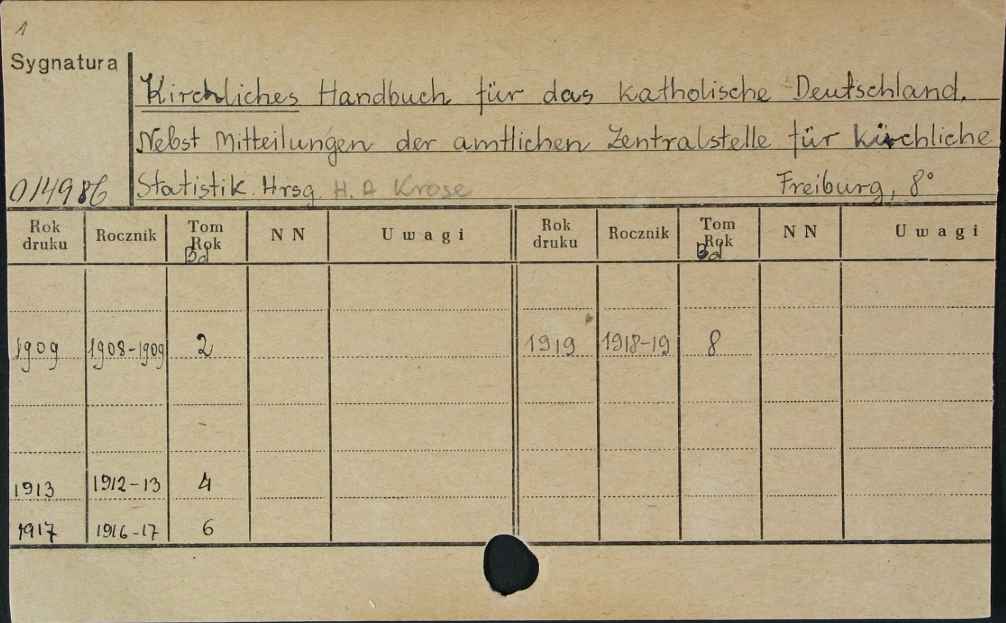 1
Sygnatura
Kirchliches Handbuch für das katholische Deutschland.
Nebst Mitteilungen der amtlichen Zentralstelle für kirchliche
014986 Statistik. Hrsg. H. A Krose Freiburg, 8°
Rok druku Rocznik Tom Rok Bd NN Uwagi Rok druku Rocznik Tom Rok Bd NN Uwagi
1909 1908-1909 2 1919 1918-19 8
1913 1912-13 4
1917 1916-17 6